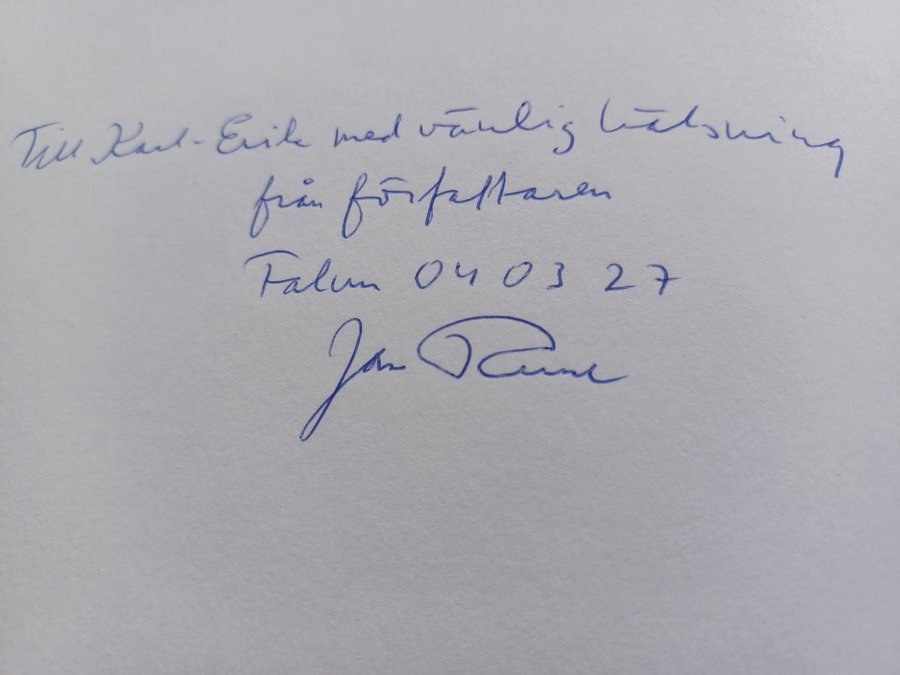 Till Karl-Erik med vänlig hälsning
från författaren
Falun 04 03 27
Jan Rune